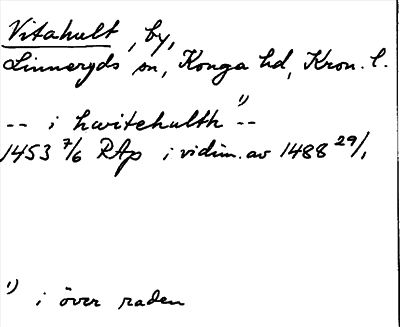 Vitahult, by,
Linneryds sn, Konga hd, Kron. l.
-- i hwitehulth ¹) --
1453 7/6 RAp i vidim. av 1488 29/1
¹) i över raden